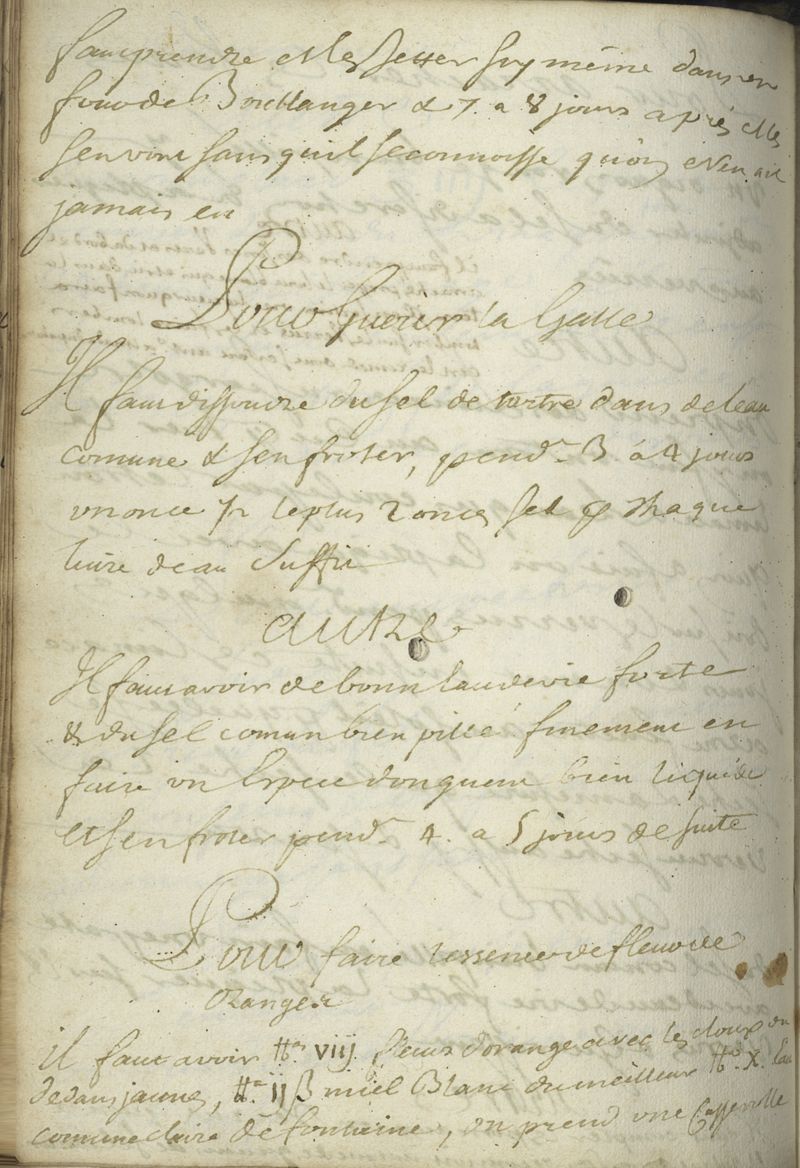 faut prendre et les Jetter soy même dans un
four de Boullanger & 7. a 8 jours après elles
s'en vont sans qu'il se connoisse qu'on en ait
jamais eu
Pour Guerir la Galle
Il faut dissoudre du sel de tartre dans de l'eau
comune & s'en froter, pend.t 3 à 4 jours
un once ½ le plus 2 onces sel p chaque
livre d'eau Suffit
autre
Il faut avoir de bonn eau de vie forte
& du sel comun bien pillé finement en
faire un Espece d'onguent bien liquide
et s'en froter pend.t 4. a 5 jours de suite
Pour faire l'essence de fleur de
Oranger
il faut avoir lb. VIII fleurs d'orange avec les
dedans jaunes, lb. II ß miel Blanc du meilleur lb. X. Eau
comune claire de fontaine, on prend une Casserolle